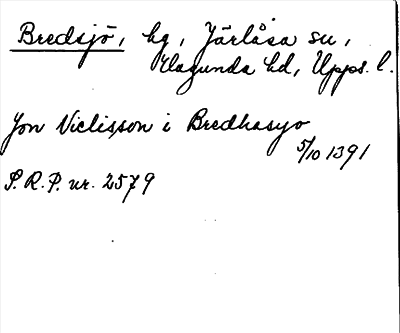 Bredsjö, by, Järlåsa sn,
Hagunda hd, Upps. l.
Jon Niclisson i Bredhasyo
5/10 1391
S.R.P. nr. 2579